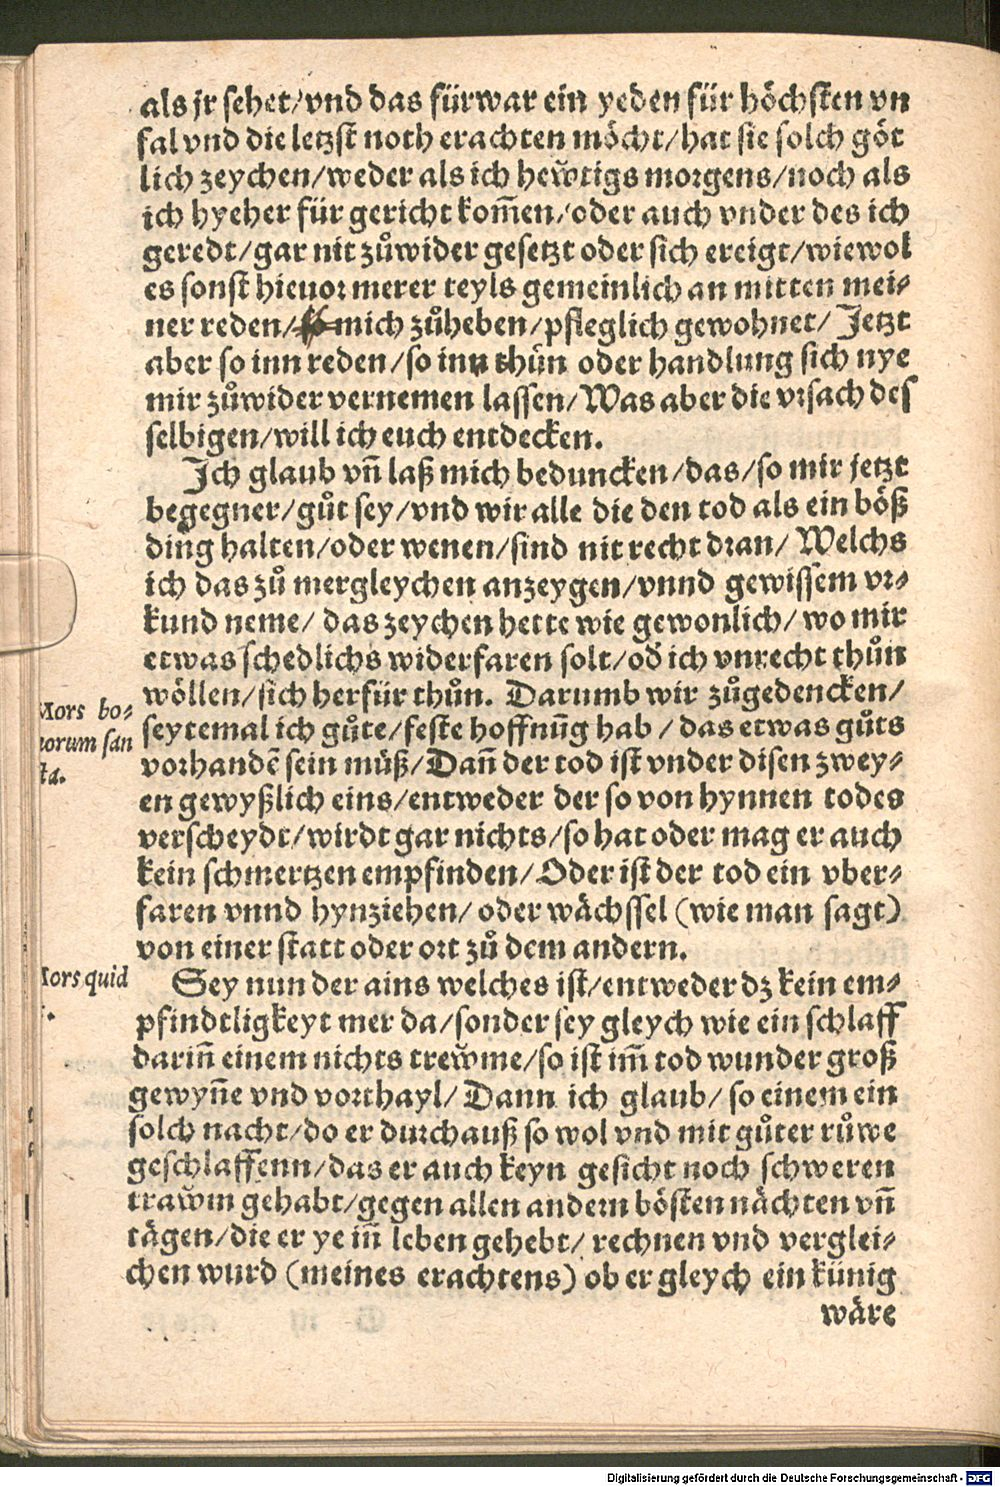 als jr sehet/vnd das fürwar ein yeden für höchsten vn
fal vnd die letzst noth erachten möcht/hat sie solch göt
lich zeychen/weder als ich hewͤtigs morgens/noch als
ich hyeher für gericht kom̃en/oder auch vnder des ich
geredt/gar nit zůwider gesetzt oder sich ereigt/wiewol
es sonst hieuor merer teyls gemeinlich an mitten mei-
ner reden/ mich zůheben/pfleglich gewohnet/ Jetzt
aber so inn reden/so inn thůn oder handlung sich nye
mir zůwider vernemen lassen/Was aber die vrsach des
selbigen/will ich euch entdecken.
Jch glaub vñ laß mich beduncken/das/so mir jetzt
begegner/gůt sey/vnd wir alle die den tod als ein böß
ding halten/oder wenen/sind nit recht dran/ Welchs
ich das zů mergleychen anzeygen/vnnd gewissem vr-
kund neme/ das zeychen hette wie gewonlich/wo mir
etwas schedlichs widerfaren solt/od̃ ich vnrecht thůn
wöllen/sich herfür thůn. Darumb wir zůgedencken/
seytemal ich gůte/feste hoffnũg hab / das etwas gůts
vorhandẽ sein müß/Dañ der tod ist vnder disen zwey-
en gewyßlich eins/entweder der so von hynnen todes
verscheydt/wirdt gar nichts/so hat oder mag er auch
kein schmertzen empfinden/Oder ist der tod ein vber-
faren vnnd hynziehen/ oder wächssel (wie man sagt)
von einer statt oder ort zů dem andern.
Mors bo-
norum san
cta.
Sey nun der ains welches ist/entweder dz kein em-
pfindtligkeyt mer da/sonder sey gleych wie ein schlaff
dariñ einem nichts trewͤme/so ist im̃ tod wunder groß
gewyñe vnd vorthayl/ Dann ich glaub/ so einem ein
solch nacht/do er durchauß so wol vnd mit gůter růwe
geschlaffenn/das er auch keyn gesicht noch schweren
trawͤm gehabt/gegen allen andern bösten nächten vñ
tägen/die er ye iñ leben gehebt/ rechnen vnd verglei-
chen wurd (meines erachtens) ob er gleych ein künig
wäre
Mors quid
Digitalisierung gefördert durch die Deutsche Forschungsgemeinschaft - DFG